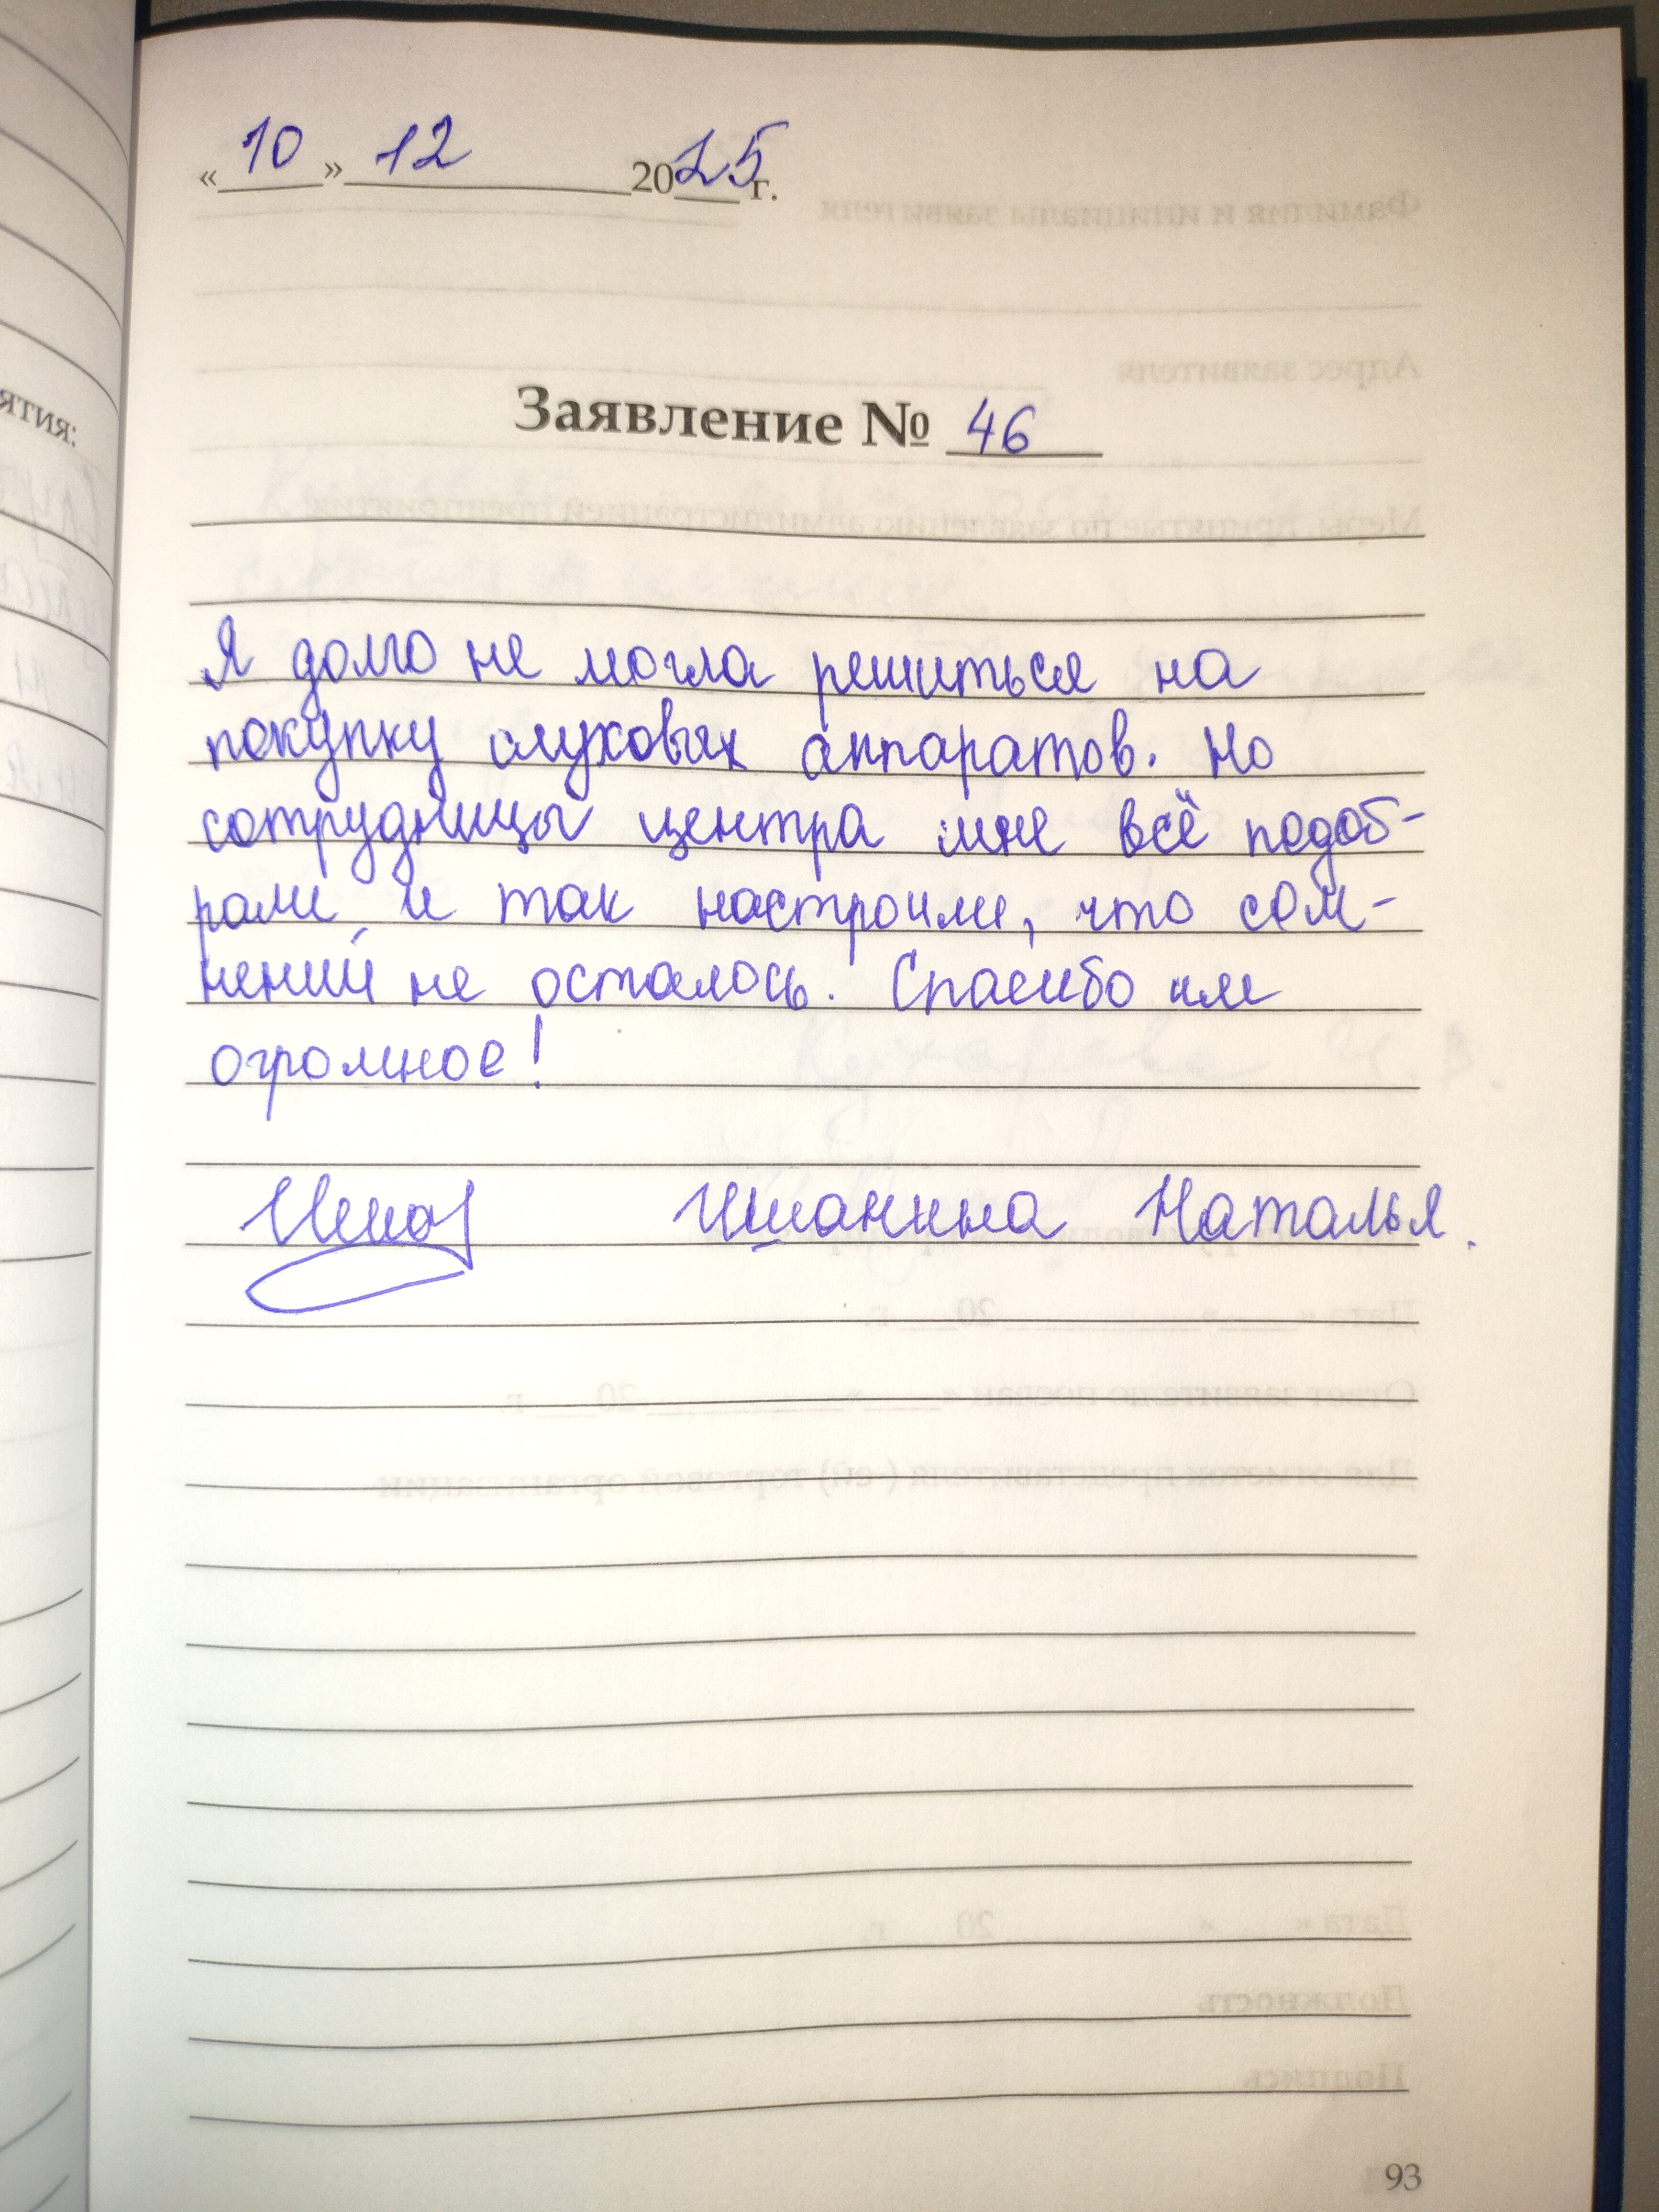 «10» 12 2025 г.
Заявление № 46
Я долго не могла решиться на
покупку слуховых аппаратов. Но
сотрудницы центра мне всё подоб-
рали и так настроили, что сом-
нений не осталось. Спасибо им
огромное!
Ишанина Наталья.
93
ятия: